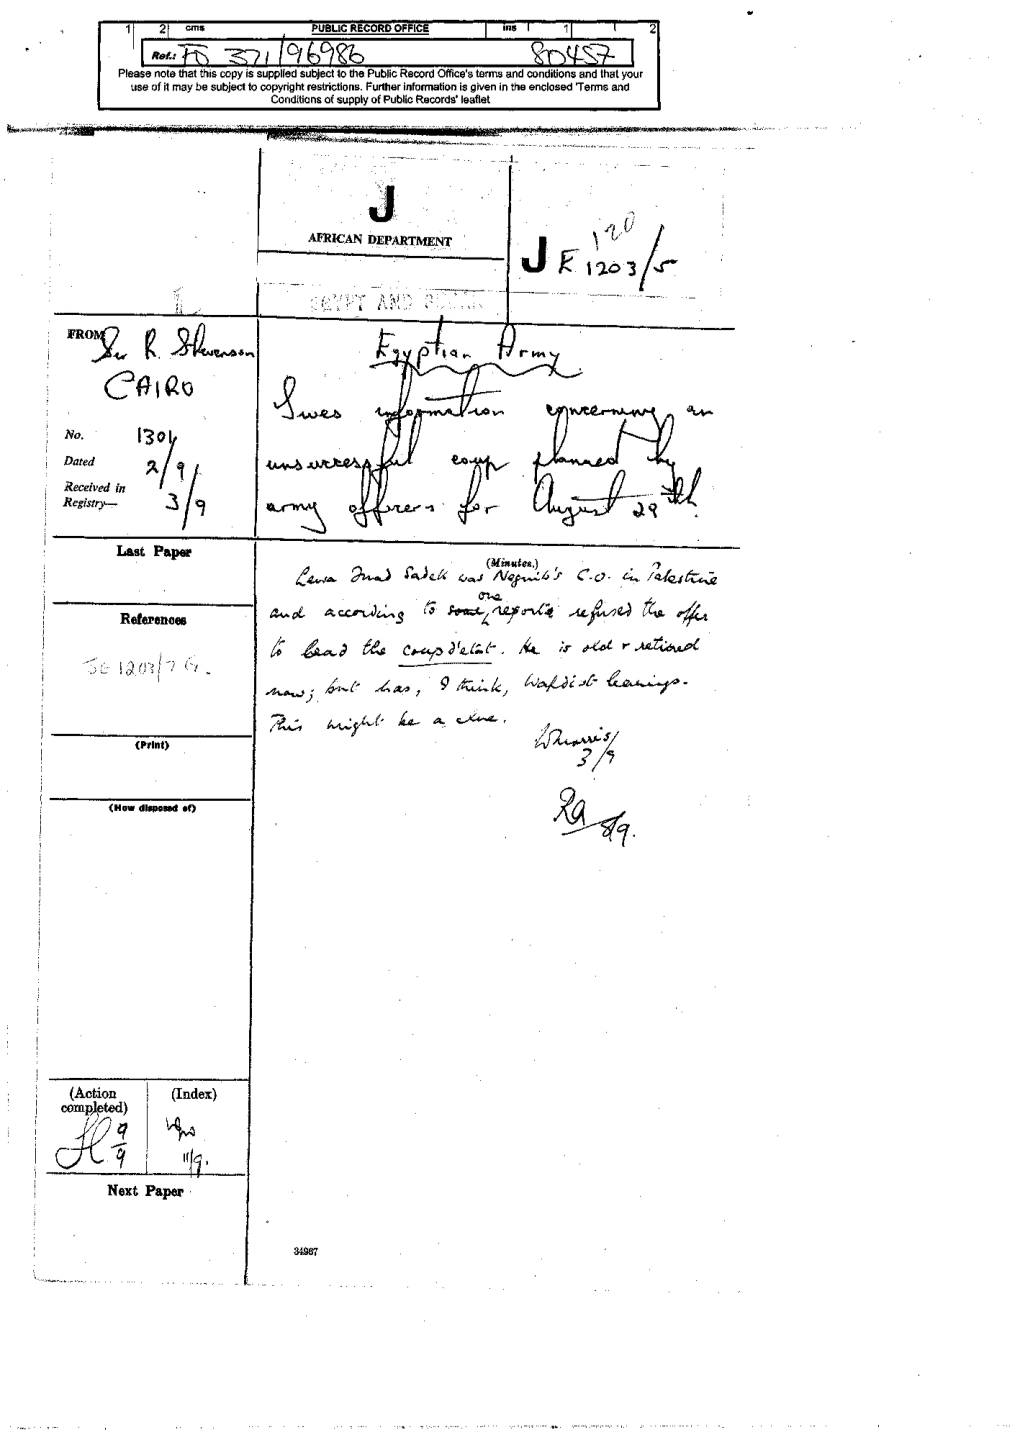 1 2 cms PUBLIC RECORD OFFICE ins 1 2
Ref.: FO 371/96986 80457
Please note that this copy is supplied subject to the Public Record Office's terms and conditions and that your
use of it may be subject to copyright restrictions. Further information is given in the enclosed 'Terms and
Conditions of supply of Public Records' leaflet
J
AFRICAN DEPARTMENT
120
J E 1203/5
EGYPT AND SUDAN
FROM Sir R. Stevenson
CAIRO
No. 1301
Dated 2/9
Received in
Registry— 3/9
Egyptian Army
Gives information concerning an
unsuccessful coup planned by
army officers for August 29th.
Last Paper
References
JE 1203/7 G.
(Print)
(How disposed of)
(Minutes.)
Lewa Fuad Sadek was Neguib's C.O. in Palestine
and according to some one reports refused the offer
to lead the coup d'etat. He is old & retired
now; but has, I think, Wafdist leanings.
This might be a clue.
3/9
8/9.
(Action
completed)
9/9
(Index)
11/9.
Next Paper
34967